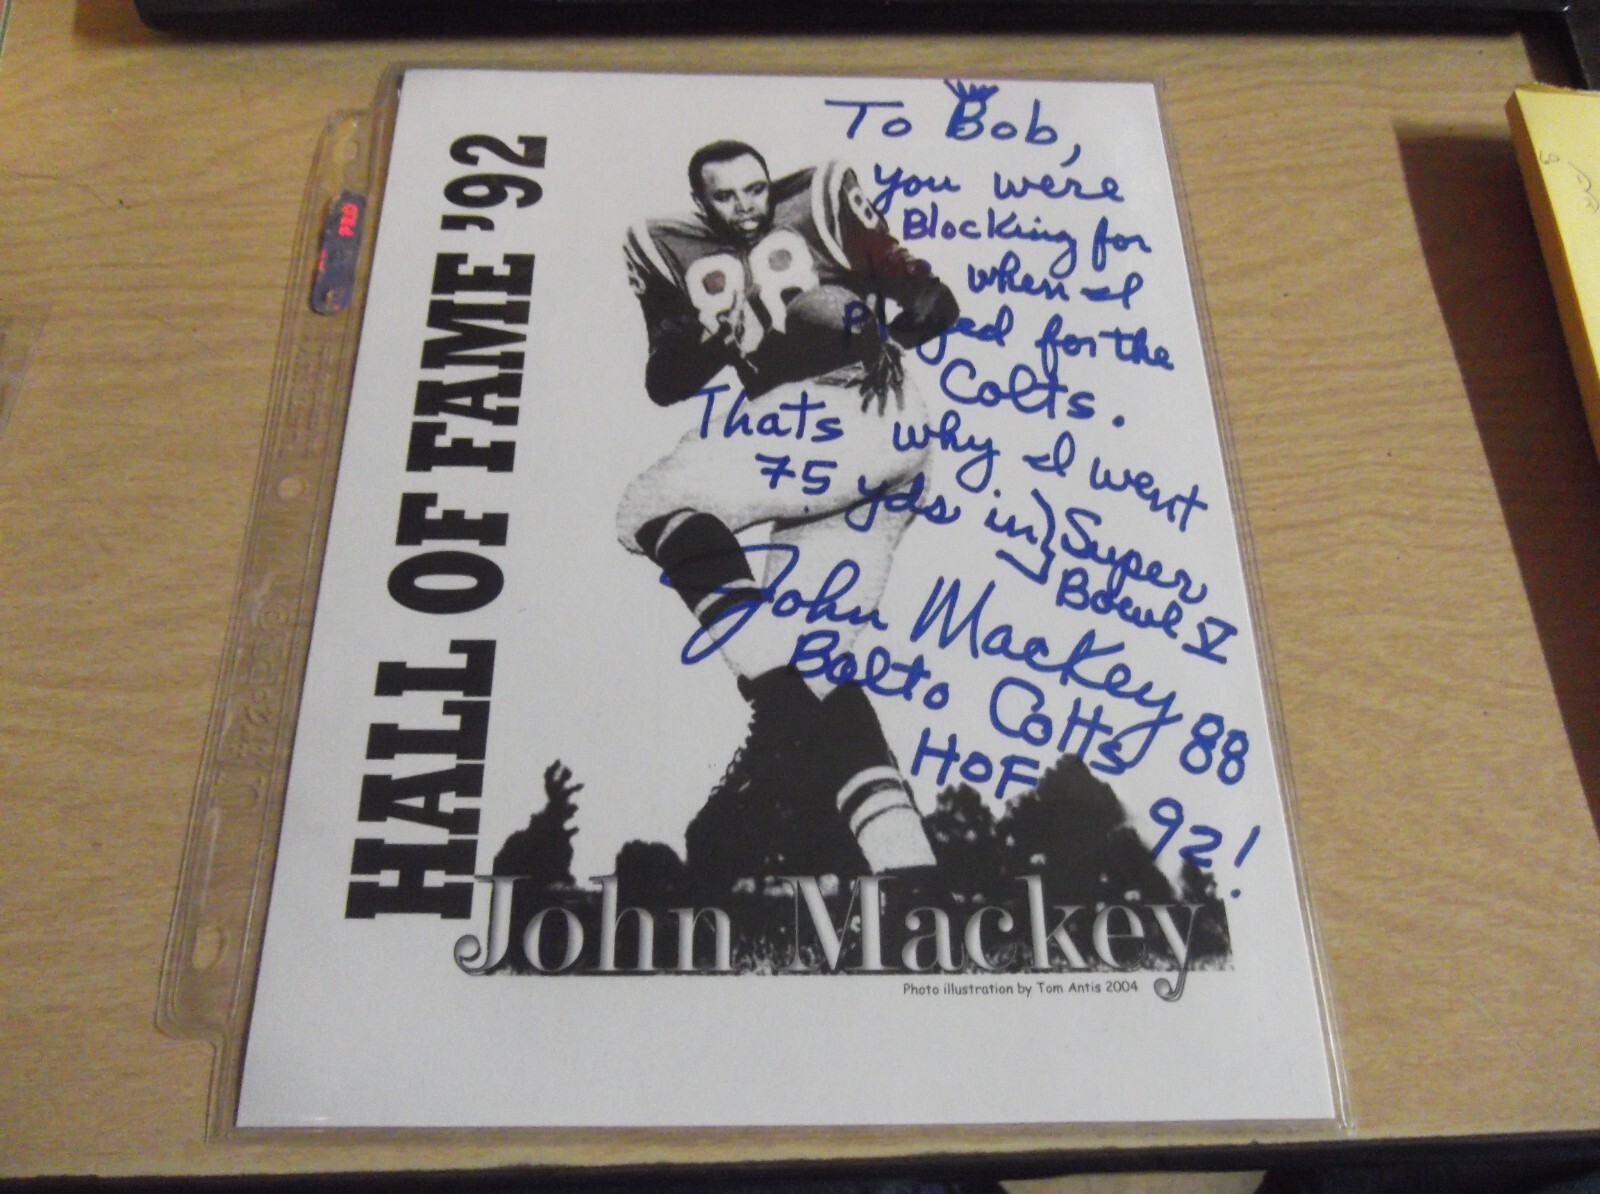 HALL OF FAME '92
To Bob,
you were
Blocking for
when I
Played for the
Colts.
Thats why I went
75 yds in Super
Bowl V
John Mackey 88
Balto Colts
HOF 92!
88
8
John Mackey
Photo illustration by Tom Antis 2004
PRO